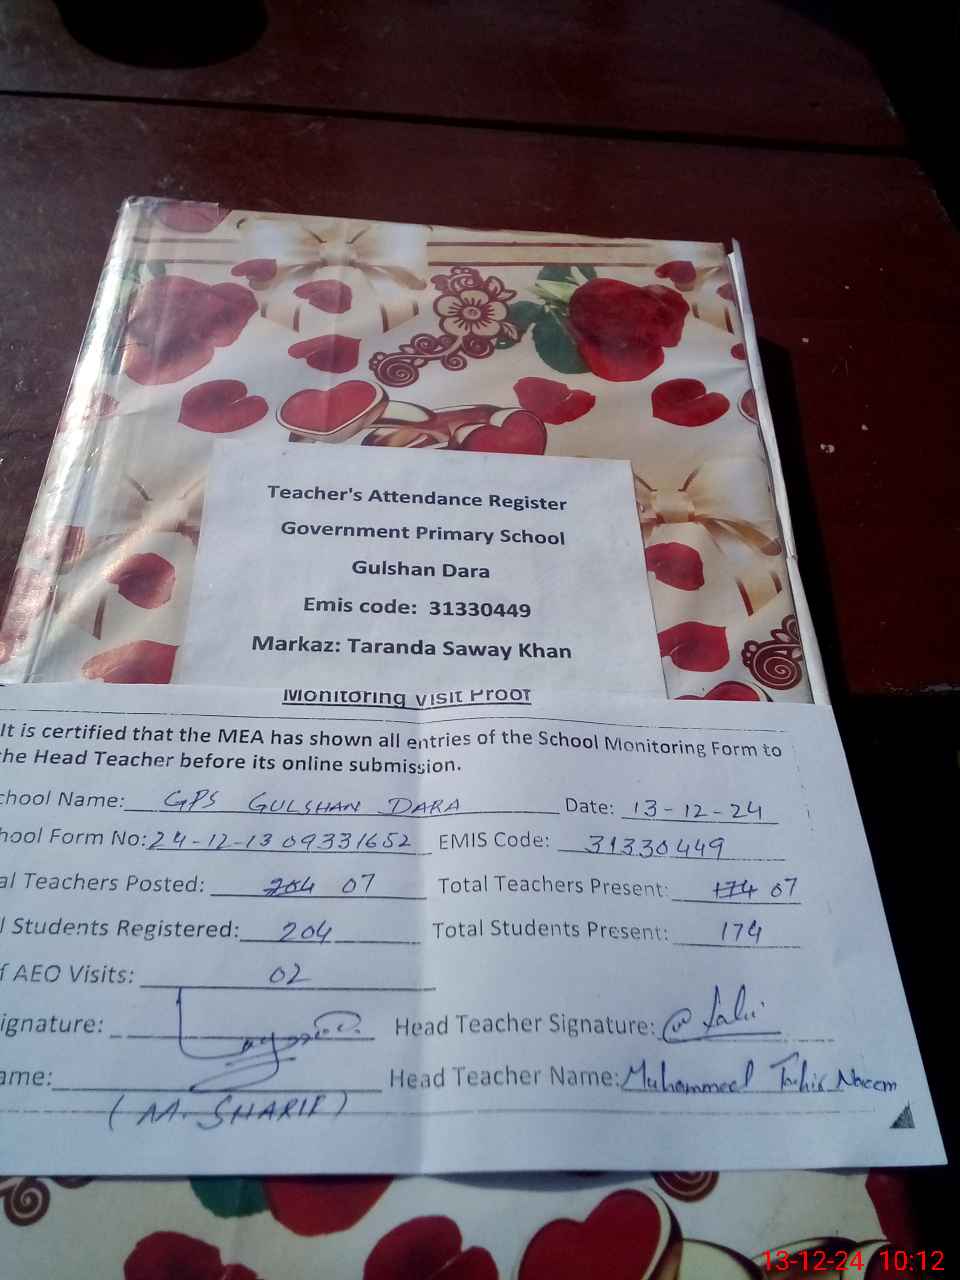 Teacher's Attendance Register
Government Primary School
Gulshan Dara
Emis code: 31330449
Markaz: Taranda Saway Khan
Monitoring Visit Proof
It is certified that the MEA has shown all entries of the School Monitoring Form to
the Head Teacher before its online submission.
chool Name: GPS GULSHAN DARA Date: 13-12-24
hool Form No: 24-12-13 09331652 EMIS Code: 31330449
al Teachers Posted: 204 07 Total Teachers Present: 174 07
l Students Registered: 204 Total Students Present: 174
f AEO Visits: 02
ignature: Head Teacher Signature:
ame: Head Teacher Name: Muhammad Tahir Naeem
(M. SHARIF)
13-12-24 10:12